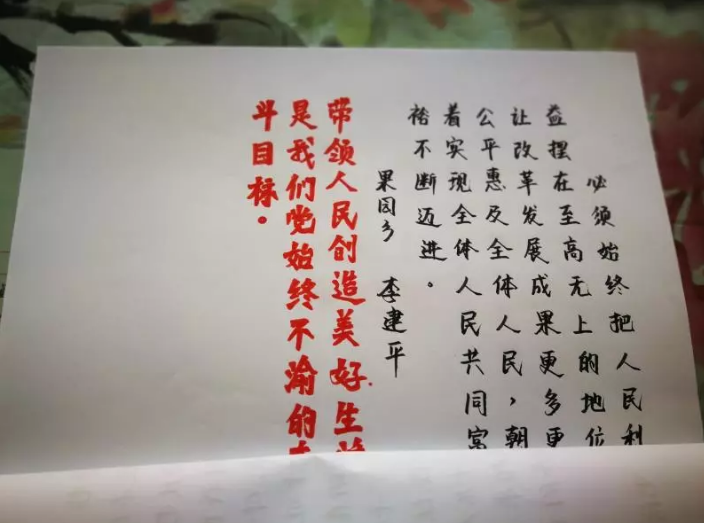 必须始终把人民利
益摆在至高无上的地位
让改革发展成果更多更
公平惠及全体人民，朝
着实现全体人民共同富
裕不断迈进。
果园乡 李建平
带领人民创造美好生
是我们党始终不渝的
斗目标。